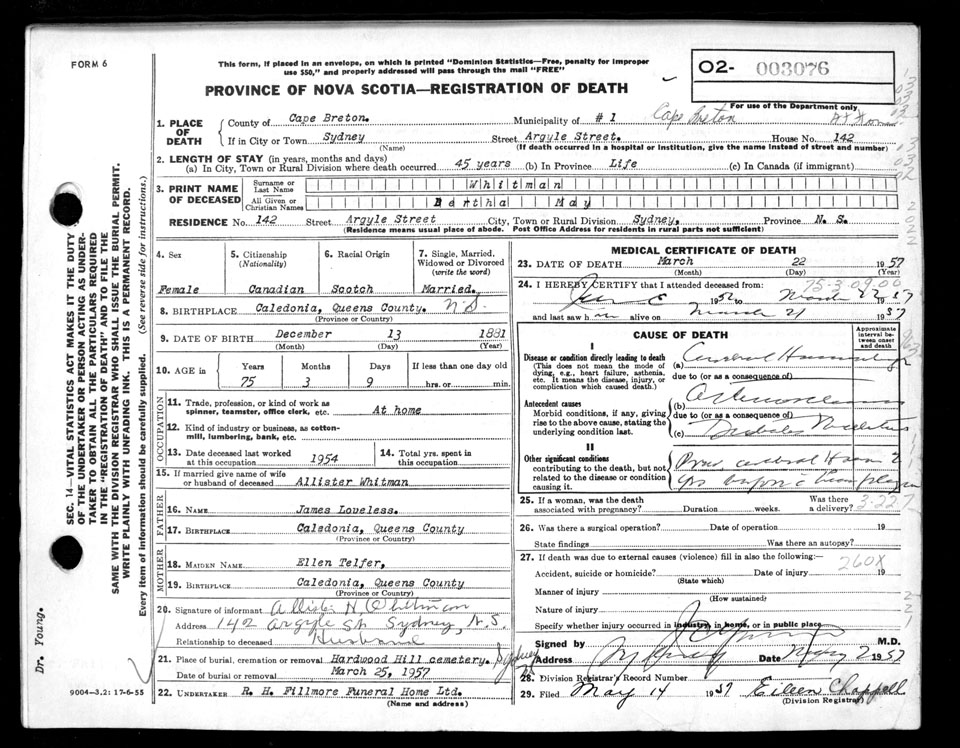 FORM 6
This form, if placed in an envelope, on which is printed "Dominion Statistics—Free, penalty for improper
use $50," and properly addressed will pass through the mail "FREE"
O2- 003076
PROVINCE OF NOVA SCOTIA—REGISTRATION OF DEATH
For use of the Department only
1. PLACE OF DEATH
County of Cape Breton. Municipality of # 1 Cape Breton
If in City or Town Sydney Street Argyle Street. House No. 142
(Name) (If death occurred in a hospital or institution, give the name instead of street and number)
2. LENGTH OF STAY (in years, months and days)
(a) In City, Town or Rural Division where death occurred 45 years (b) In Province Life (c) In Canada (if immigrant)
3. PRINT NAME OF DECEASED
Surname or Last Name Whitman
All Given or Christian Names Bertha May
RESIDENCE No. 142 Street Argyle Street City, Town or Rural Division Sydney, Province N. S.
(Residence means usual place of abode. Post Office Address for residents in rural parts not sufficient)
4. Sex
Female
5. Citizenship
(Nationality)
Canadian
6. Racial Origin
Scotch
7. Single, Married,
Widowed or Divorced
(write the word)
Married.
8. BIRTHPLACE Caledonia, Queens County. N.S.
(Province or Country)
9. DATE OF BIRTH December 13 1881
(Month) (Day) (Year)
10. AGE in
Years Months Days If less than one day old
75 3 9 hrs. or min.
OCCUPATION
11. Trade, profession, or kind of work as
spinner, teamster, office clerk, etc. At home
12. Kind of industry or business, as cotton-
mill, lumbering, bank, etc.
13. Date deceased last worked
at this occupation 1954
14. Total yrs. spent in
this occupation
15. If married give name of wife
or husband of deceased Allister Whitman
FATHER
16. NAME James Loveless.
17. BIRTHPLACE Caledonia, Queens County
(Province or Country)
MOTHER
18. MAIDEN NAME Ellen Telfer,
19. BIRTHPLACE Caledonia, Queens County
(Province or Country)
20. Signature of informant Allister H. Whitman
Address 142 Argyle St Sydney, N.S.
Relationship to deceased Husband
21. Place of burial, cremation or removal Hardwood Hill cemetery. Sydney
Date of burial or removal March 25, 1957
22. UNDERTAKER R. H. Fillmore Funeral Home Ltd.
(Name and address)
9004—3.2: 17-6-55
MEDICAL CERTIFICATE OF DEATH
23. DATE OF DEATH March 22 1957
(Month) (Day) (Year)
24. I HEREBY CERTIFY that I attended deceased from:
75-3.09.00
June 1952 to March 22 1957
and last saw h alive on March 21 1957
CAUSE OF DEATH
Approximate
interval be-
tween onset
and death
I
Disease or condition directly leading to death
(This does not mean the mode of
dying, e.g., heart failure, asthenia,
etc. It means the disease, injury, or
complication which caused death.)
(a) Cerebral Haemorrhage
due to (or as a consequence of)
Antecedent causes
Morbid conditions, if any, giving
rise to the above cause, stating the
underlying condition last.
(b) Arteriosclerosis
due to (or as a consequence of)
(c) Diabetes Mellitus
II
Other significant conditions
contributing to the death, but not
related to the disease or condition
causing it.
Prev cerebral Haem
yrs before
25. If a woman, was the death
associated with pregnancy? Duration weeks. Was there
a delivery?
3-22
26. Was there a surgical operation? Date of operation 19
State findings Was there an autopsy?
27. If death was due to external causes (violence) fill in also the following:
260X
Accident, suicide or homicide? Date of injury 19
(State which)
Manner of injury
(How sustained)
Nature of injury
Specify whether injury occurred in industry, in home, or in public place
Signed by M.D.
Address Date May 2 1957
28. Division Registrar's Record Number
29. Filed May 14 1957 Eileen Chappell
(Division Registrar)
SEC. 14—VITAL STATISTICS ACT MAKES IT THE DUTY
OF THE UNDERTAKER OR PERSON ACTING AS UNDER-
TAKER TO OBTAIN ALL THE PARTICULARS REQUIRED
IN THE "REGISTRATION OF DEATH" AND TO FILE THE
SAME WITH THE DIVISION REGISTRAR WHO SHALL ISSUE THE BURIAL PERMIT.
WRITE PLAINLY WITH UNFADING INK. THIS IS A PERMANENT RECORD.
Every item of information should be carefully supplied. (See reverse side for instructions.)
Dr. Young.